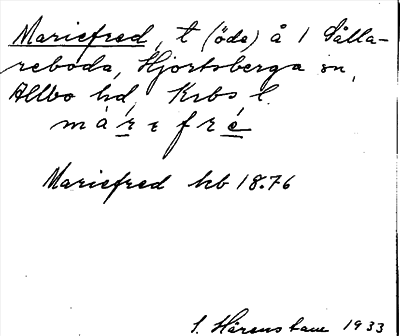 Mariefred, t (öde) å 1 Sålla-
reboda, Hjortsberga sn,
Allbo hd, Krbs l.
màrɛfré
Mariefred hb 1876
S. Härenstam 1933